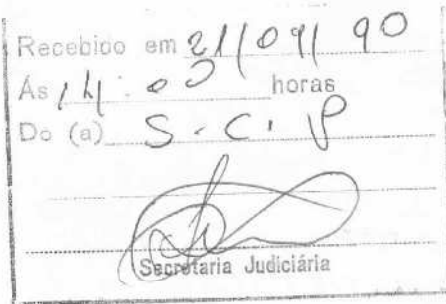 Recebido em 21/09/90
Ás 14:00 horas
Do (a) S.C.P
Secretaria Judiciária